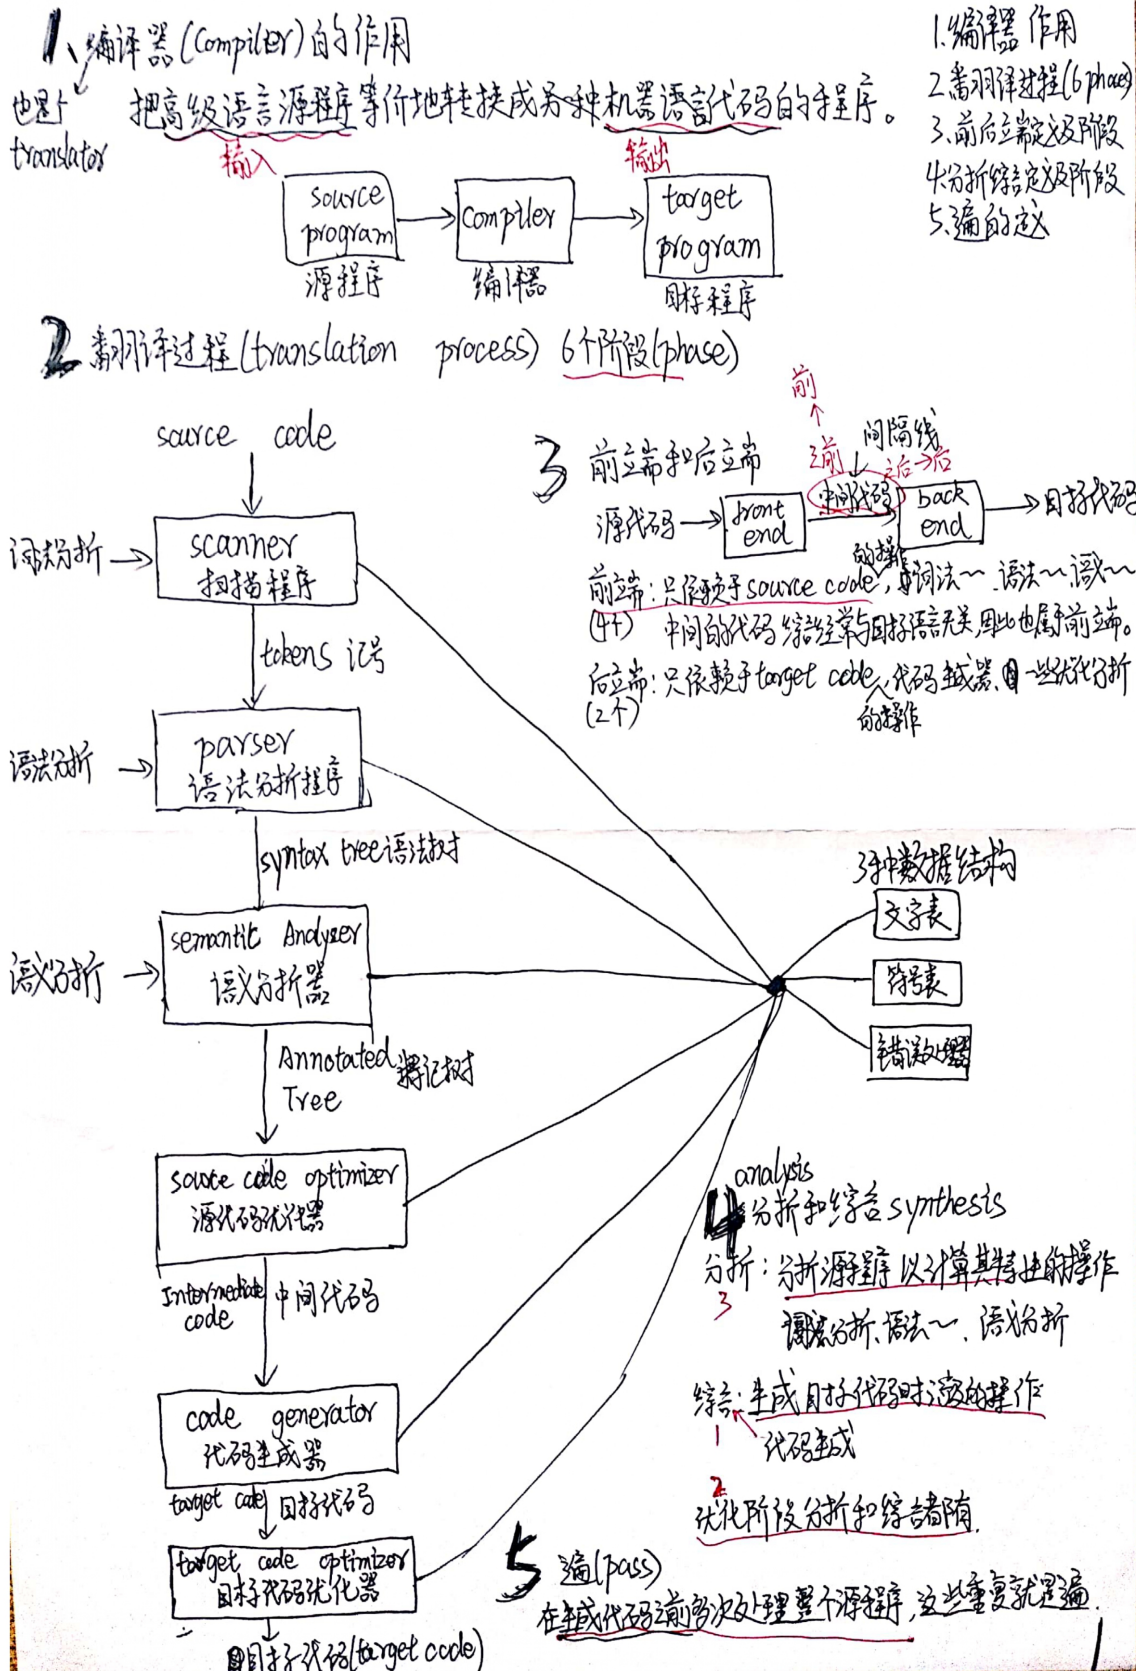 1、编译器(Compiler)的作用
也是个
translator
把高级语言源程序等价地转换成另一种机器语言代码的程序。
输入
输出
source
program
源程序
Compiler
编译器
target
program
目标程序
1.编译器作用
2.翻译过程(6 phase)
3.前后端定义及阶段
4.分析综合定义及阶段
5.遍的定义
2 翻译过程(translation process) 6个阶段(phase)
source code
词法分析
scanner
扫描程序
tokens 记号
语法分析
parser
语法分析程序
syntax tree语法树
语义分析
semantic Analyzer
语义分析器
Annotated
Tree
注记树
source code optimizer
源代码优化器
Intermediate
code
中间代码
code generator
代码生成器
target code
目标代码
target code optimizer
目标代码优化器
目标代码(target code)
3 前端和后端
前
之前
间隔线
之后→后
源代码
front
end
中间代码
back
end
目标代码
前端:只依赖于source code,
的操作
词法~ 语法~ 语义~
(4个)
中间的代码综合经常与目标语言无关,因此也属于前端。
后端:只依赖于target code,代码生成器、一些优化分析
(2个)
的操作
3种数据结构
文字表
符号表
错误处理器
analysis
4 分析和综合synthesis
分析:分析源程序以计算其特性的操作
3
词法分析、语法~、语义分析
综合:生成目标代码时涉及的操作
1
代码生成
2
优化阶段分析和综合都有.
5 遍(pass)
在生成代码之前多次处理整个源程序,这些重复就是遍.
1